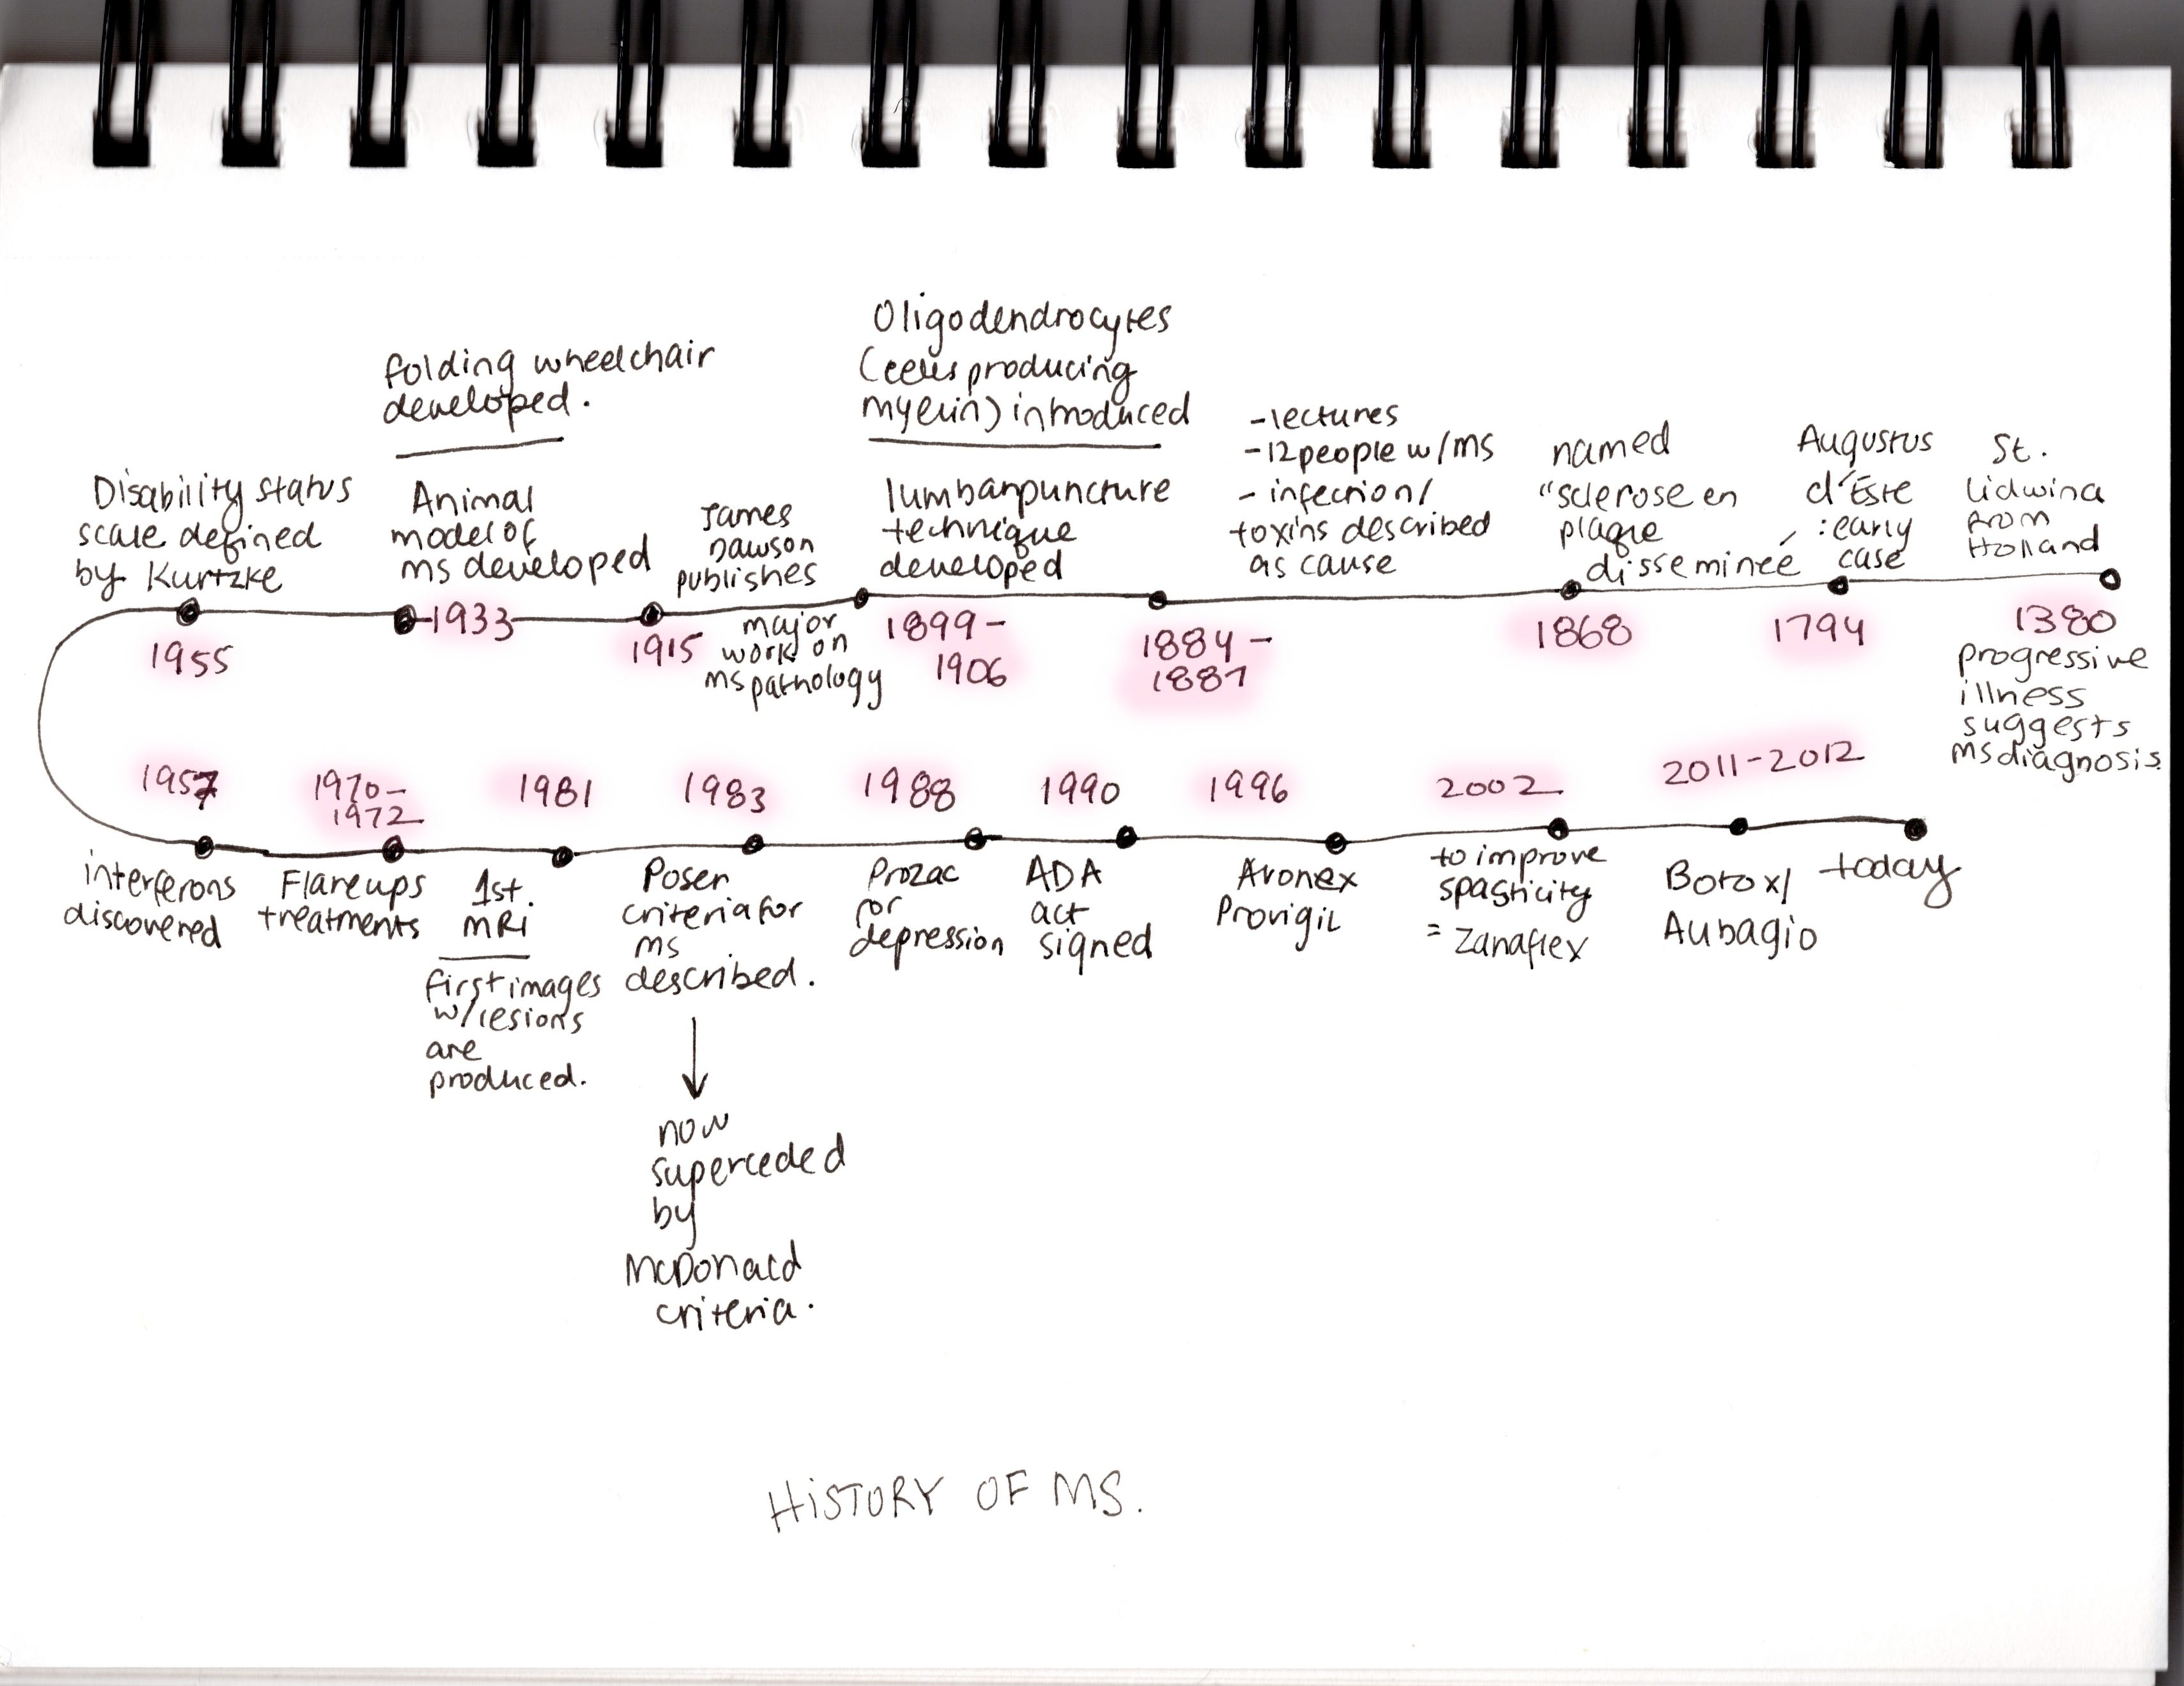 Oligodendrocytes
(cells producing
myelin) introduced
folding wheelchair
developed.
Disability status
scale defined
by Kurtzke
1955
Animal
model of
ms developed
1933
James
Dawson
publishes
1915
major
work on
ms pathology
lumbarpuncture
technique
developed
1899-
1906
-lectures
-12 people w/ms
- infection/
toxins described
as cause
1884-
1887
named
"sclerose en
plaque
disseminée
1868
Augustus
d'Este
:early
case
1794
St.
Lidwina
from
Holland
1380
progressive
illness
suggests
ms diagnosis.
1957
interferons
discovered
1970-
1972
Flareups
treatments
1981
1st.
MRI
first images
w/lesions
are
produced.
1983
Poser
criteria for
ms
described.
now
superceded
by
McDonald
criteria.
1988
Prozac
for
depression
1990
ADA
act
signed
1996
Avonex
Provigil
2002
to improve
spasticity
= Zanaflex
2011-2012
Botox/
Aubagio
today
HISTORY OF MS.